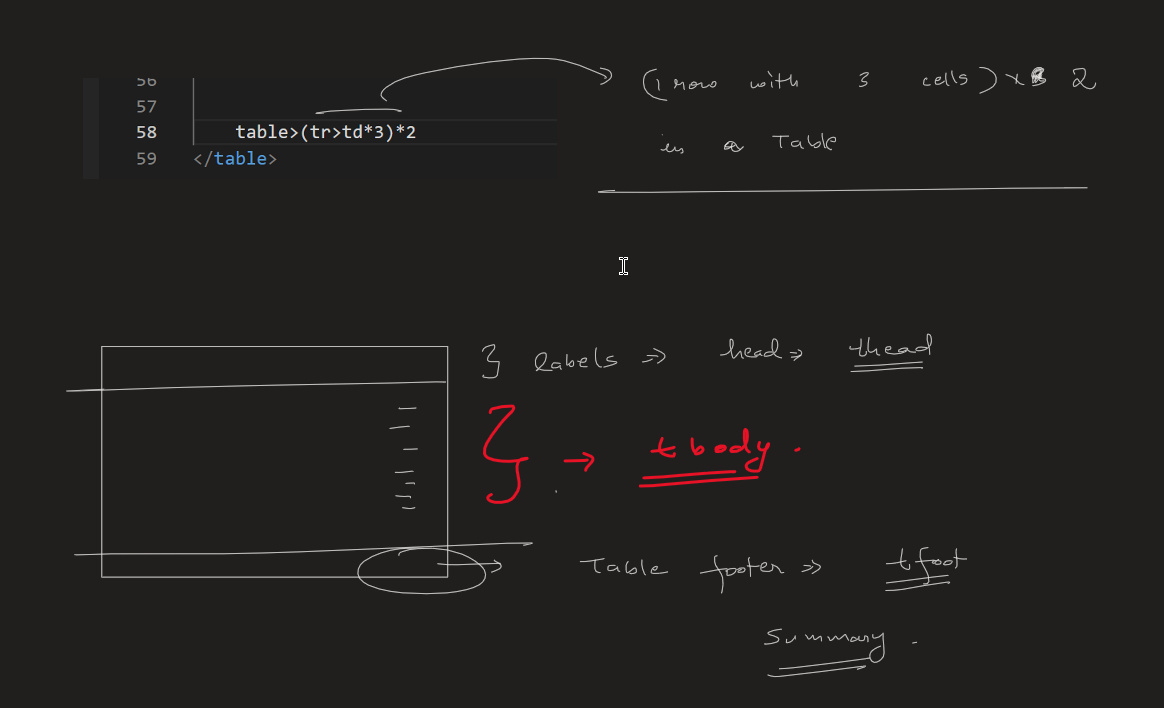 56
57
58 table>(tr>td*3)*2
59 </table>
(1 row with 3 cells) x 2
in a Table
} labels => head => thead
} → tbody.
Table footer => tfoot
Summary.